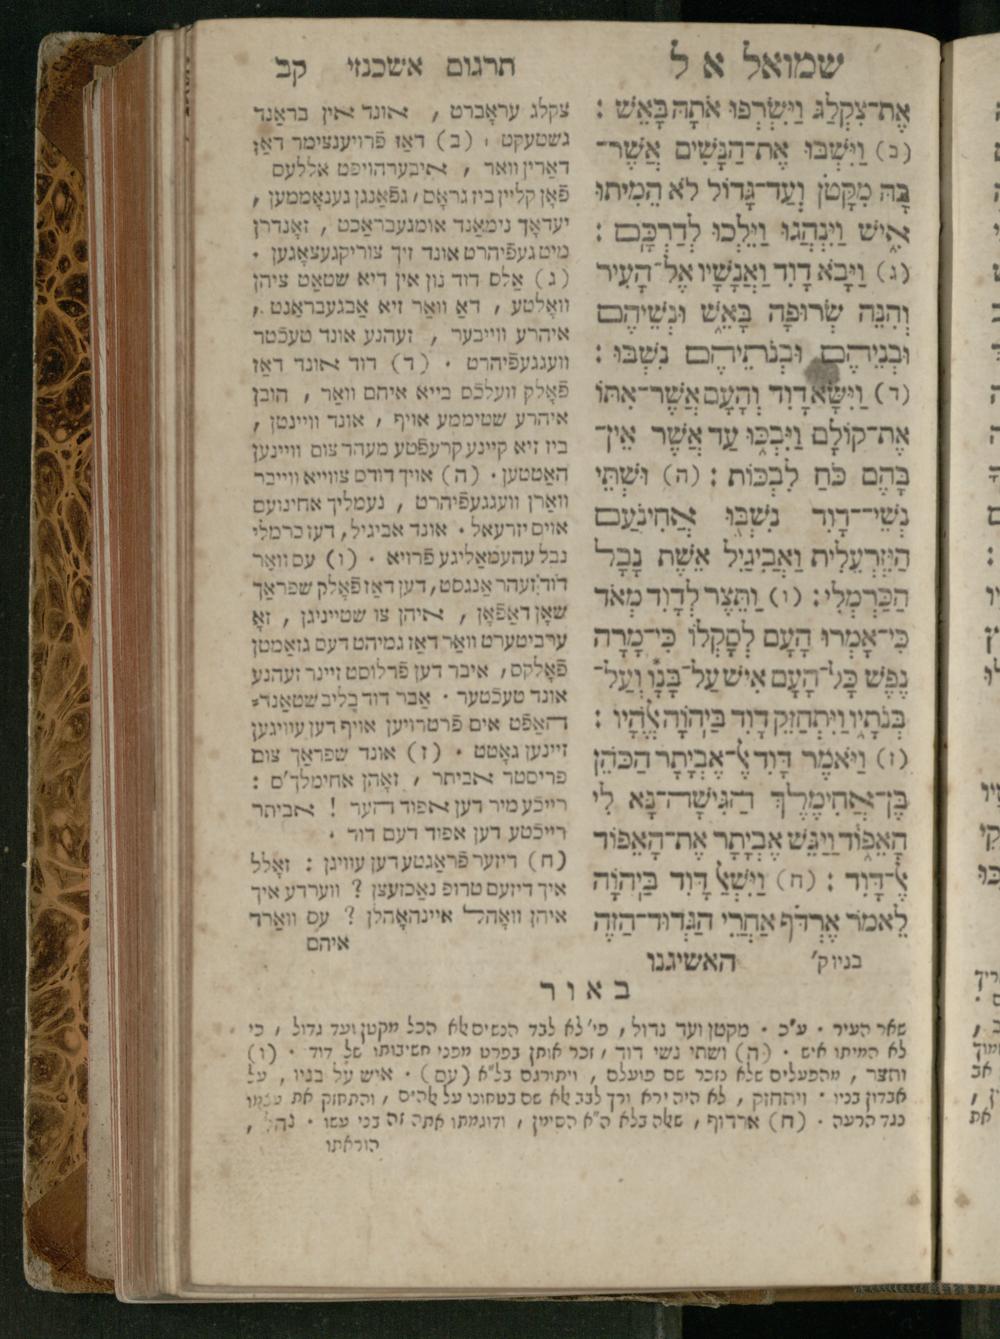 שמואל א ל
תרגום אשכנזי קב
אֶת־צִקְלַג וַיִּשְׂרְפוּ אֹתָהּ בָּאֵשׁ :
(ב) וַיִּשְׁבּוּ אֶת־הַנָּשִׁים אֲשֶׁר־
בָּהּ מִקָּטֹן וְעַד־גָּדוֹל לֹא הֵמִיתוּ
אִישׁ וַיִּנְהֲגוּ וַיֵּלְכוּ לְדַרְכָּם :
(ג) וַיָּבֹא דָוִד וַאֲנָשָׁיו אֶל־הָעִיר
וְהִנֵּה שְׂרוּפָה בָּאֵשׁ וּנְשֵׁיהֶם
וּבְנֵיהֶם וּבְנֹתֵיהֶם נִשְׁבּוּ :
(ד) וַיִּשָּׂא דָוִד וְהָעָם אֲשֶׁר־אִתּוֹ
אֶת־קוֹלָם וַיִּבְכּוּ עַד אֲשֶׁר אֵין־
בָּהֶם כֹּחַ לִבְכּוֹת : (ה) וּשְׁתֵּי
נְשֵׁי־דָוִד נִשְׁבּוּ אֲחִינֹעַם
הַיִּזְרְעֵלִית וַאֲבִיגַיִל אֵשֶׁת נָבָל
הַכַּרְמְלִי : (ו) וַתֵּצֶר לְדָוִד מְאֹד
כִּי־אָמְרוּ הָעָם לְסָקְלוֹ כִּי־מָרָה
נֶפֶשׁ כָּל־הָעָם אִישׁ עַל־בָּנָו וְעַל־
בְּנֹתָיו וַיִּתְחַזֵּק דָּוִד בַּיהוָֹה אֱלֹהָיו :
(ז) וַיֹּאמֶר דָּוִד אֶל־אֶבְיָתָר הַכֹּהֵן
בֶּן־אֲחִימֶלֶךְ הַגִּישָׁה־נָּא לִי
הָאֵפוֹד וַיַּגֵּשׁ אֶבְיָתָר אֶת־הָאֵפוֹד
אֶל־דָּוִד : (ח) וַיִּשְׁאַל דָּוִד בַּיהוָֹה
לֵאמֹר אֶרְדֹּף אַחֲרֵי הַגְּדוּד־הַזֶּה
בניו ק' האשיגנו
צקלג עראָברט , אונד אין בראַנד
געשטעקט , (ב) דאַז פֿרויענצימר דאַז
דאַרין וואר , איבערהויפט אללעס
פֿאָן קליין ביז גראָס , געפֿאַנגן גענאָממען ,
יעדאָך נימאַנד אומגעבראַכט , זאָנדרן
מיט געפֿיהרט אונד זיך צוריקגעצאָגען .
(ג) אַלס דוד נון אין דיא שטאַט ציהן
וואָלטע , דאַ וואַר זיא אַבגעבראַנט ,
איהרע ווייבער , זעהנע אונד טעכטר
וועגגעפֿיהרט . (ד) דוד אונד דאַז
פֿאָלק וועלכס בייא איהם וואַר , הובן
איהרע שטיממע אויף , אונד וויינטן ,
ביז זיא קיינע קרעפֿטע מעהר צום וויינען
האַטטען . (ה) אויך דודס צווייא ווייבר
וואַרן וועגגעפֿיהרט , נעמליך אחינועם
אויס יזרעאל . אונד אביגיל , דען כרמלי
נבל עהעמאַליגע פֿרויא . (ו) עס וואַר
דוד זעהר אַנגסט , דען דאַז פֿאָלק שפראַך
שאָן דאַפֿאָן , איהן צו שטייניגן , זאָ
ערביטערט וואר דאַז געמיהט דעס גזאַמטן
פֿאָלקס , איבר דען פֿרלוסט זיינר זעהנע
אונד טעכטער . אַבר דוד בליב שטאַנד־
האַפֿט אים פֿרטרויען אויף דען עוויגען
זיינען גאָטט . (ז) אונד שפראַך צום
פריסטר אביתר , זאָהן אחימלך'ס :
רייכע מיר דען אפוד העֿר ! אביתר
רייכטע דען אפוד דעם דוד .
(ח) דיזער פֿראַגטע דען עוויגן : זאָלל
איך דיזעם טרופ נאַכזעצן ? ווערדע איך
איהן וואָהל איינהאָהלן ? עס וואַרד
איהם
באור
שאר העיר . ע"כ . מקטן ועד גדול , פי' לא לבד הנשים אלא הכל מקטן ועד גדול , כי
לא המיתו איש . (ה) ושתי נשי דוד , זכר אותן בפרט מפני חשיבותו של דוד . (ו)
ותצר , מהפעלים שלא נזכר שם פועלם , ויתורגם בל"א (עס) . איש על בניו , על
אבדון בניו . ויתחזק , לא היה ירא ורך לבב אלא שם בטחונו על אלהים , והתחזק את עצמו
כנגד הרעה . (ח) ארדוף , שאלה בלא ה"א הסימן , ודוגמתו אתה זה בני עשו .
הוראתו